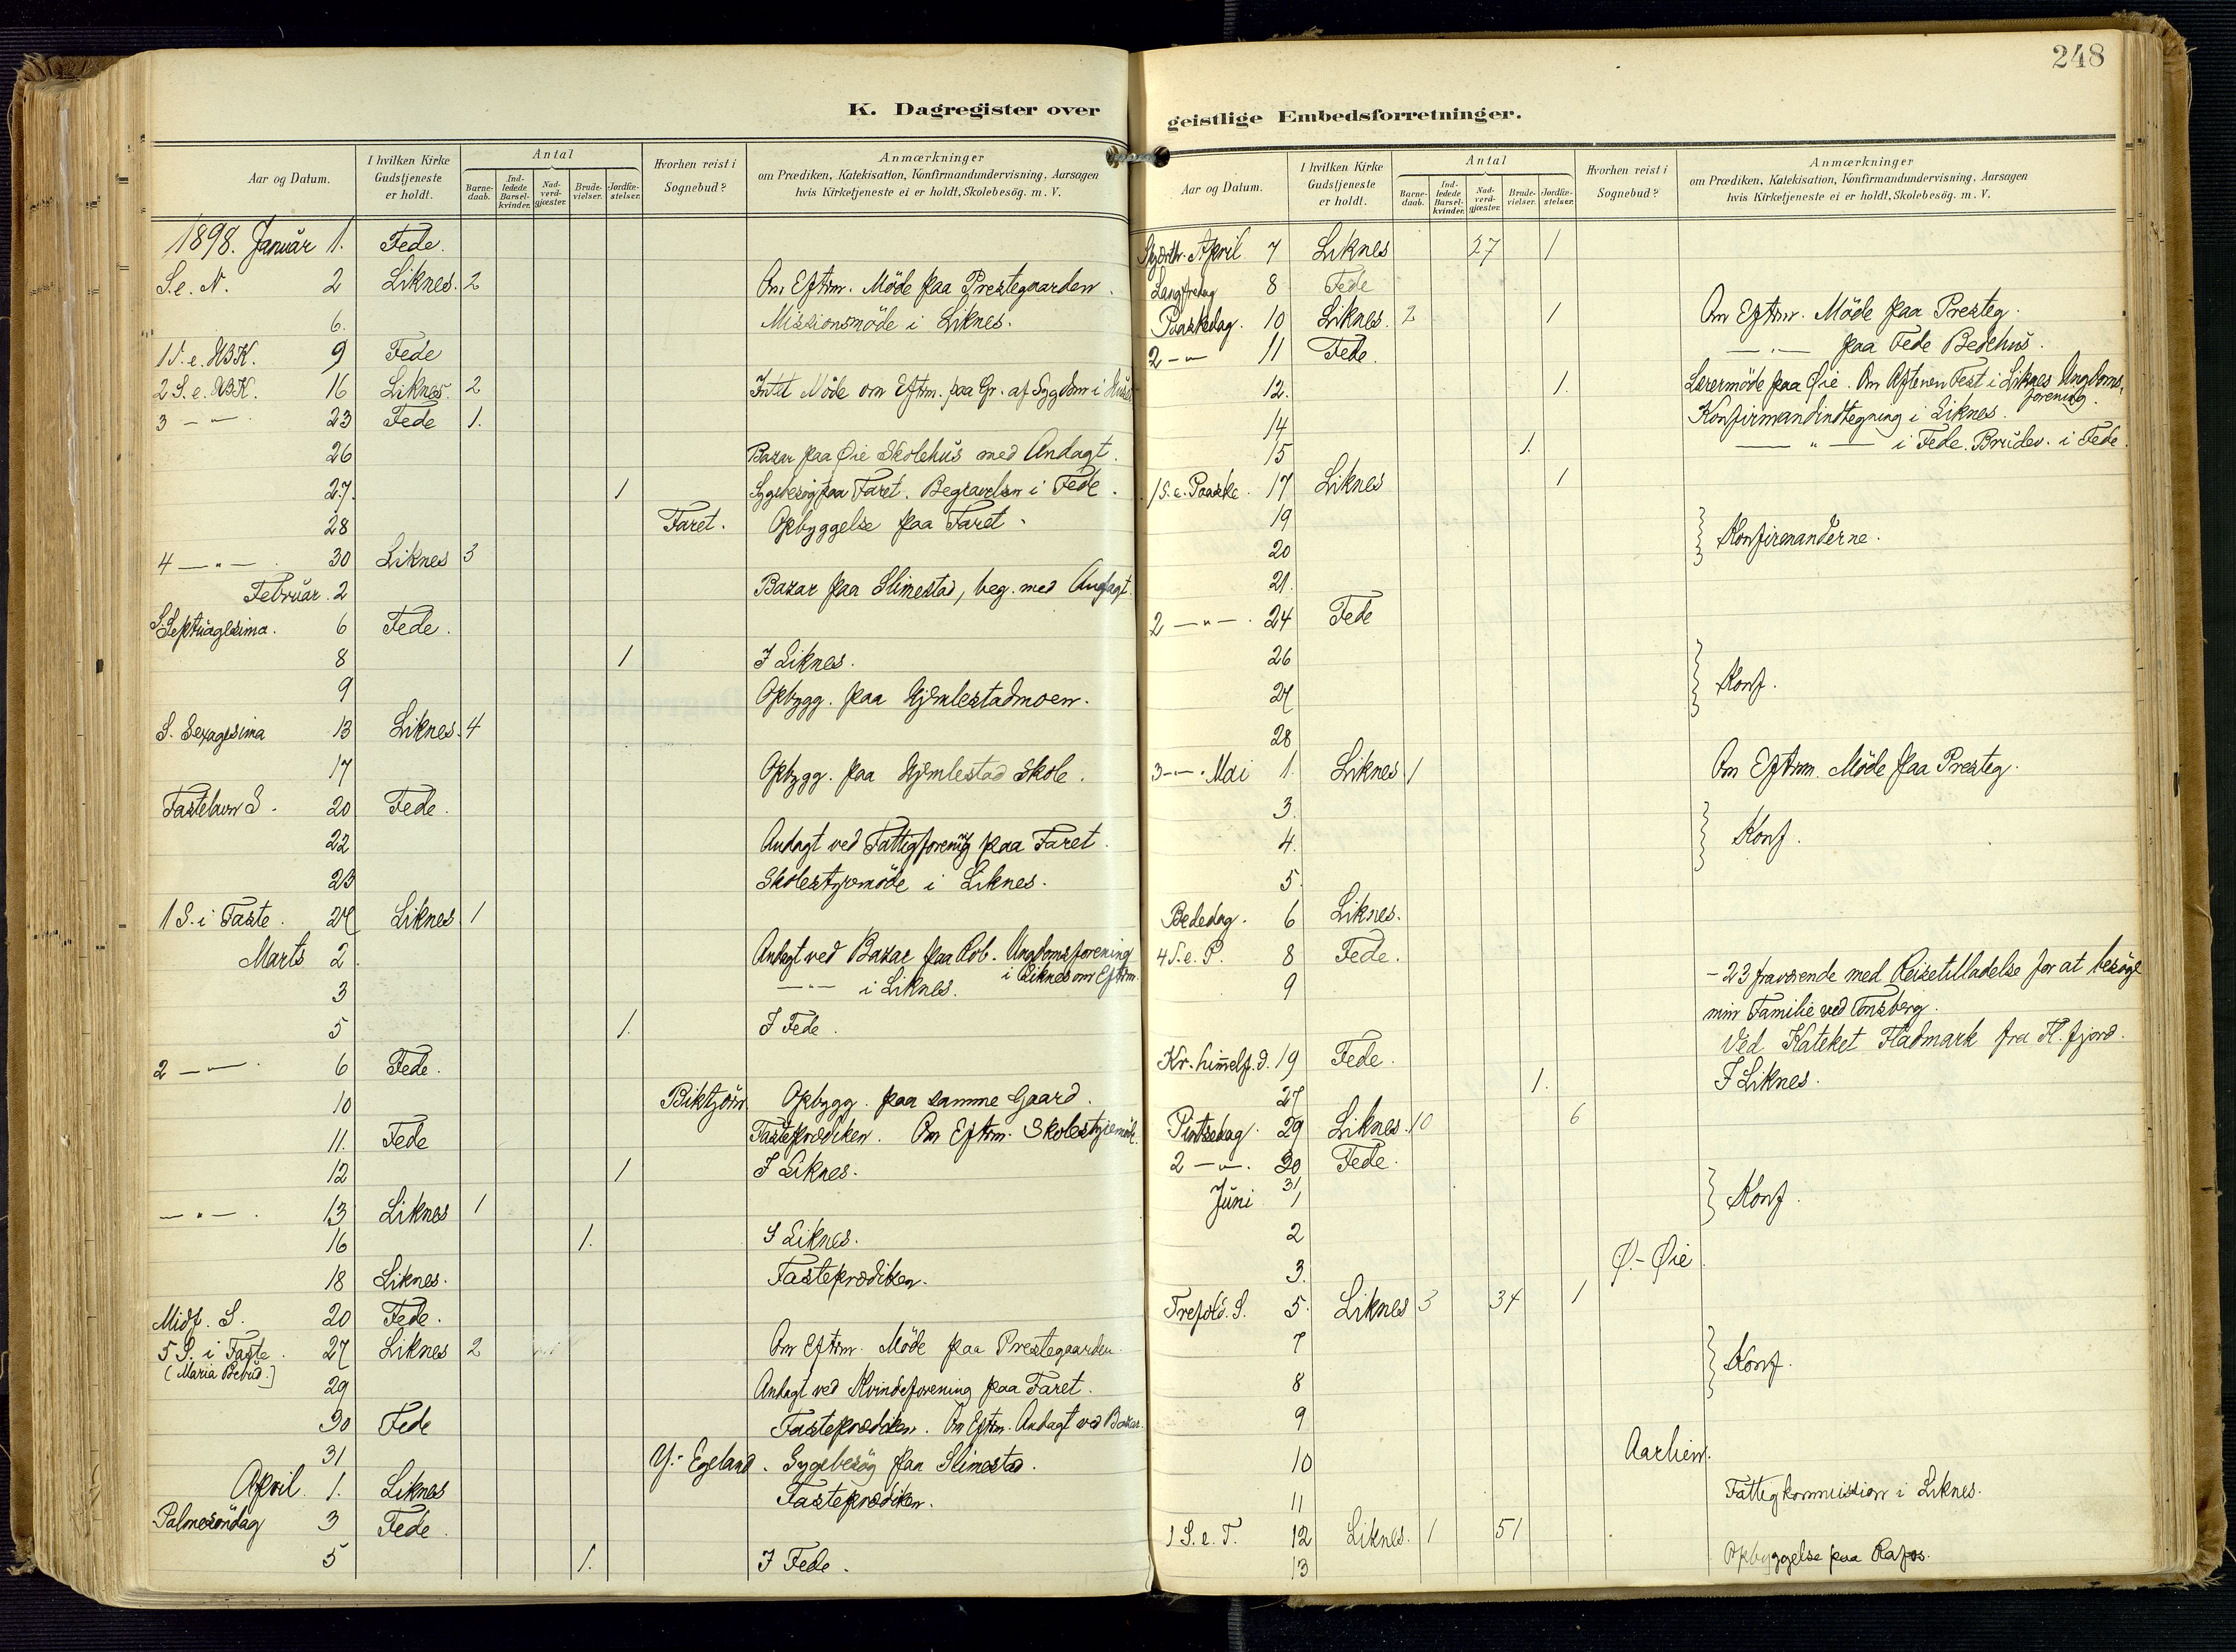 248
K. Dagregister over geistlige Embedsforretninger.
Aar og Datum. I hvilken Kirke Gudstjeneste er holdt. Antal Barnedaab. Indledede Barselkvinder. Nadverdgjæster. Brudevielser. Jordfæstelser. Hvorhen reist i Sognebud? Anmærkninger om Prædiken, Katekisation, Konfirmandundervisning, Aarsagen hvis Kirketjeneste ei er holdt, Skolebesög. m. V.
1898. Januar 1. Fede.
S. e. N. 2 Liknes. 2 Om Eftrm. Möde paa Prestegaarden.
6. Missionsmöde i Liknes.
1 S. e. HBK. 9 Fede
2 S. e. HBK. 16 Liknes. 2 Intet Möde om Eftrm. paa Gr. af Sygdom i Huset
3 - " - 23 Fede 1.
26 Bazar paa Øie Skolehus med Andagt.
27. 1 Sygebesög paa Faret. Begravelsen i Fede.
28 Faret. Opbyggelse paa Faret.
4 - " - . 30 Liknes 3
Februar. 2 Bazar paa Slimestad, beg. med Andagt.
S. Septuagesima. 6 Fede.
8 1 I Liknes.
9 Opbygg. paa Gjemlestadmoen.
S. Sexagesima 13 Liknes. 4
17 Opbygg. paa Gjemlestad Skole.
Fastelavn S. 20 Fede.
22 Andagt ved Fattigforening paa Faret.
23 Skolestyremöde i Liknes.
1 S. i Faste. 27 Liknes 1
Marts 2. Andagt ved Bazar paa Rob. Ungdomsforening
3 - " - i Liknes. i Liknes om Eftrm.
5 1. I Fede.
2 - " - . 6 Fede.
10 Biktjörn Opbygg. paa samme Gaard.
11. Fede Fasteprædiken. Om Eftrm. Skolestyremöde.
12 1 I Liknes.
- " - . 13 Liknes 1
16 1. I Liknes.
18 Liknes. Fasteprædiken.
Midf. S. 20 Fede.
5 S. i Faste. 27 Liknes 2 Om Eftrm. Möde paa Prestegaarden.
(Maria Bebud.)
29 Andagt ved Kvindeforening paa Faret.
30 Fede Fasteprædiken. Om Eftrm. Andagt ved Bazar.
31 Y.- Egeland. Sygebesög paa Slimestad.
April 1. Liknes Fasteprædiken.
Palmesöndag 3 Fede.
5 1. I Fede.
Aar og Datum. I hvilken Kirke Gudstjeneste er holdt. Antal Barnedaab. Indledede Barselkvinder. Nadverdgjæster. Brudevielser. Jordfæstelser. Hvorhen reist i Sognebud? Anmærkninger om Prædiken, Katekisation, Konfirmandundervisning, Aarsagen hvis Kirketjeneste ei er holdt, Skolebesög. m. V.
Skjærth. April 7 Liknes 27 1
Langfredag 8 Fede
Paaskedag. 10 Liknes. 2 1 Om Eftrm. Möde paa Presteg.
2 - " - 11 Fede. - " - paa Fede Bedehus.
12. 1. Lærermöde paa Øie. Om Aftenen Fest i Liknes Ungdoms-
forening.
14 Konfirmandindtegning i Liknes.
15 1. - " - i Fede. Brudev. i Fede.
1 S. e. Paaske. 17 Liknes 1
19
20 Konfirmanderne.
21.
2 - " - . 24 Fede
26
27 Konf.
28
3 - " - . Mai 1. Liknes 1 Om Eftrm. Möde paa Presteg.
3.
4. Konf.
5.
Bededag. 6 Liknes.
4 S. e. P. 8 Fede.
9 - 23 fraværende med Reisetilladelse for at besöge
min Familie ved Tönsberg.
Kr. himmelf. d. 19 Fede. Ved Kateket Fladmark fra Fl. fjord.
27 1. I Liknes.
Pintsedag. 29 Liknes. 10 6
2 - " - . 30 Fede.
31
Juni 1 Konf.
2
3. Ø.- Øie
Trefold. S. 5. Liknes 3 34 1
7
8 Konf.
9
10 Aarlien.
11 Fattigkommission i Liknes.
1 S. e. T. 12 Liknes. 1 51
13 Opbyggelse paa Rafos.